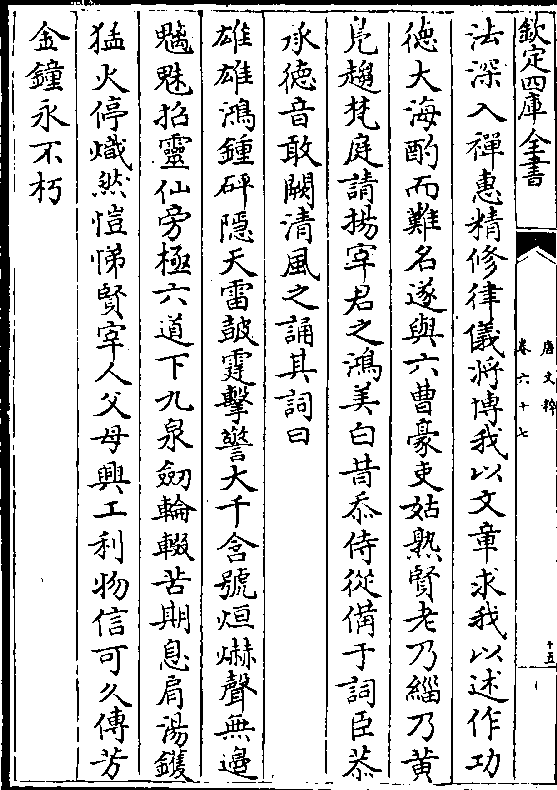 欽定四庫全書
唐文粹
卷六十七
十五
法深入禪惠精修律儀將博我以文章求我以述作功
徳大海酌而難名遂與六曹豪吏姑熟賢老乃緇乃黄
鳬趨梵庭請揚宰君之鴻美白昔忝侍從備于詞臣恭
承徳音敢闕清風之誦其詞曰
雄雄鴻鍾砰隱天雷鼓霆擊警大千含號烜爀聲無邊
魑魅招靈仙旁極六道下九泉劒輪輟苦期息肩湯鑊
猛火停熾然愷悌賢宰人父母興工利物信可久傳芳
金鐘永不朽